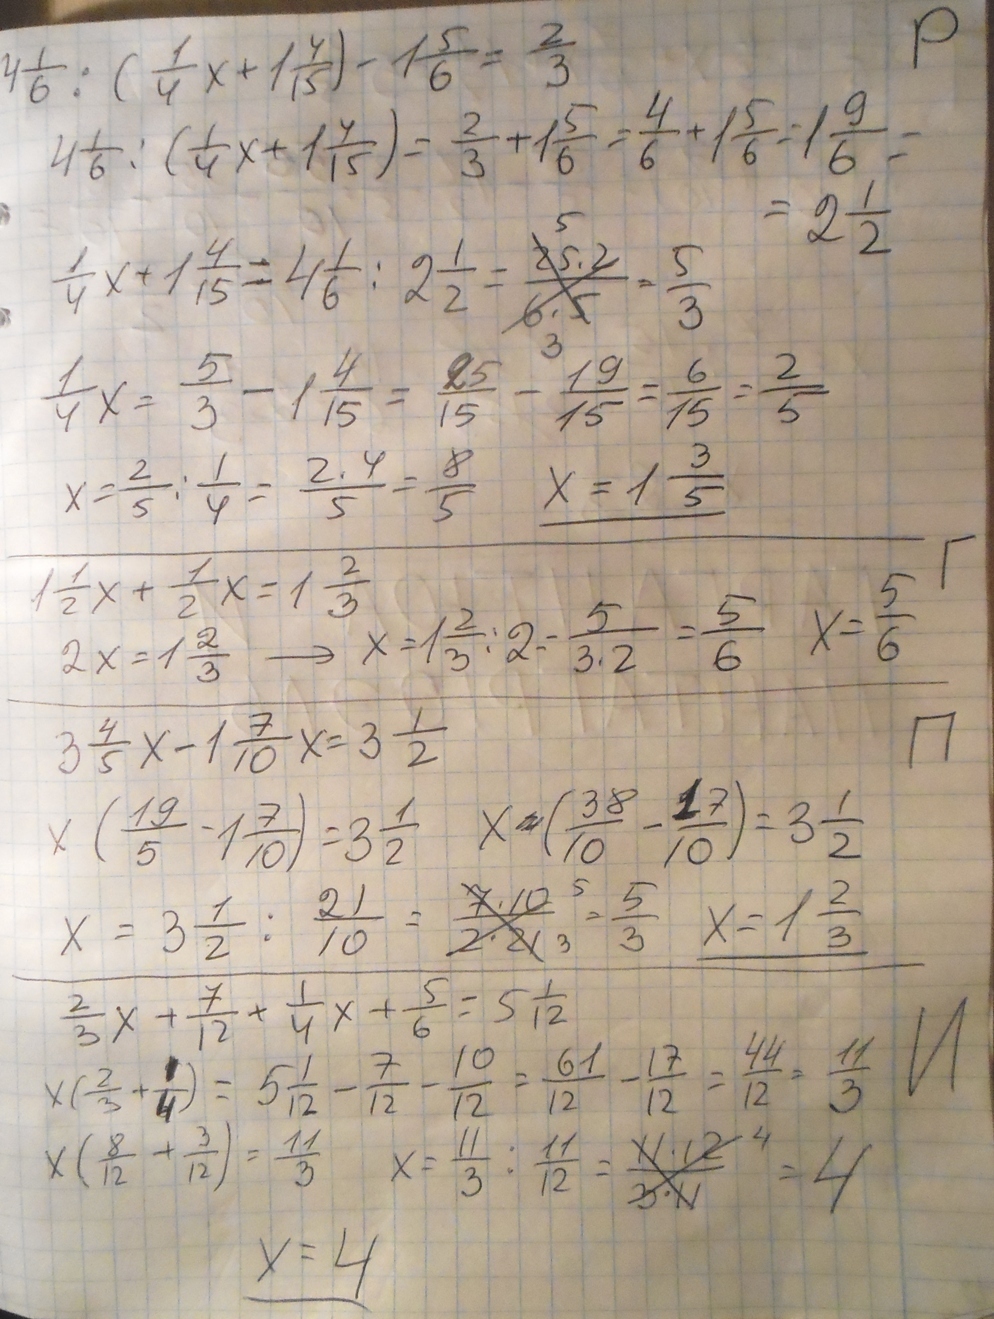 4 1/6 : (1/4 x + 1 4/15) - 1 5/6 = 2/3 Р
4 1/6 : (1/4 x + 1 4/15) = 2/3 + 1 5/6 = 4/6 + 1 5/6 = 1 9/6 =
= 2 1/2
1/4 x + 1 4/15 = 4 1/6 : 2 1/2 = 25·2/6·5 5 3 = 5/3
1/4 x = 5/3 - 1 4/15 = 25/15 - 19/15 = 6/15 = 2/5
x = 2/5 : 1/4 = 2·4/5 = 8/5 x = 1 3/5
1 1/2 x + 1/2 x = 1 2/3 Г
2x = 1 2/3 → x = 1 2/3 : 2 = 5/3·2 = 5/6 x = 5/6
3 4/5 x - 1 7/10 x = 3 1/2 П
x (19/5 - 1 7/10) = 3 1/2 x (38/10 - 17/10) = 3 1/2
x = 3 1/2 : 21/10 = 7·10/2·21 5 3 = 5/3 x = 1 2/3
2/3 x + 7/12 + 1/4 x + 5/6 = 5 1/12 И
x (2/3 + 1/4) = 5 1/12 - 7/12 - 10/12 = 61/12 - 17/12 = 44/12 = 11/3
x (8/12 + 3/12) = 11/3 x = 11/3 : 11/12 = 11·12/3·11 4 = 4
x = 4